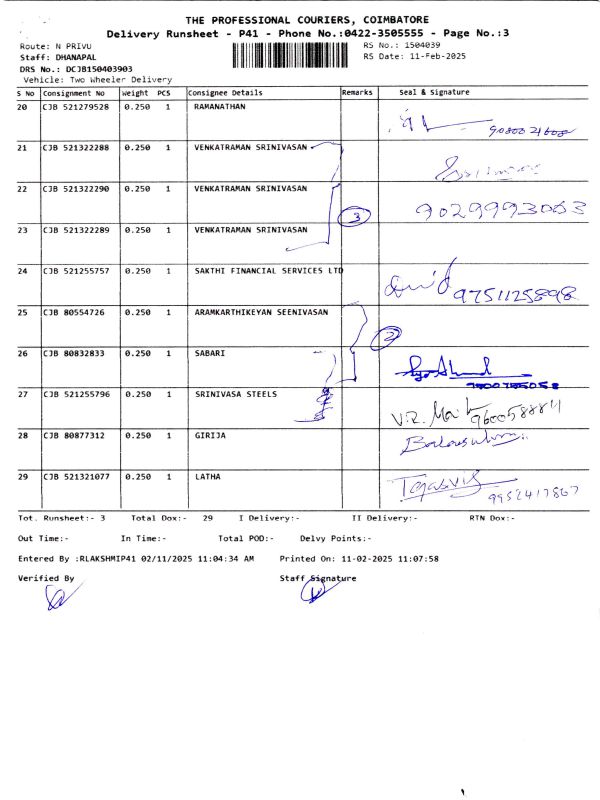 THE PROFESSIONAL COURIERS, COIMBATORE
Delivery Runsheet - P41 - Phone No.:0422-3505555 - Page No.:3
Route: N PRIVU RS No.: 1504039
Staff: DHANAPAL RS Date: 11-Feb-2025
DRS No.: DCJB150403903
Vehicle: Two Wheeler Delivery
S No Consignment No Weight PCS Consignee Details Remarks Seal & Signature
20 CJB 521279528 0.250 1 RAMANATHAN
21 CJB 521322288 0.250 1 VENKATRAMAN SRINIVASAN
22 CJB 521322290 0.250 1 VENKATRAMAN SRINIVASAN 3 9029993063
23 CJB 521322289 0.250 1 VENKATRAMAN SRINIVASAN
24 CJB 521255757 0.250 1 SAKTHI FINANCIAL SERVICES LTD 9751125898
25 CJB 80554726 0.250 1 ARAMKARTHIKEYAN SEENIVASAN
2
26 CJB 80832833 0.250 1 SABARI
27 CJB 521255796 0.250 1 SRINIVASA STEELS V.R.
28 CJB 80877312 0.250 1 GIRIJA
29 CJB 521321077 0.250 1 LATHA 9952417867
Tot. Runsheet:- 3 Total Dox:- 29 I Delivery:- II Delivery:- RTN Dox:-
Out Time:- In Time:- Total POD:- Delvy Points:-
Entered By :RLAKSHMIP41 02/11/2025 11:04:34 AM Printed On: 11-02-2025 11:07:58
Verified By Staff Signature